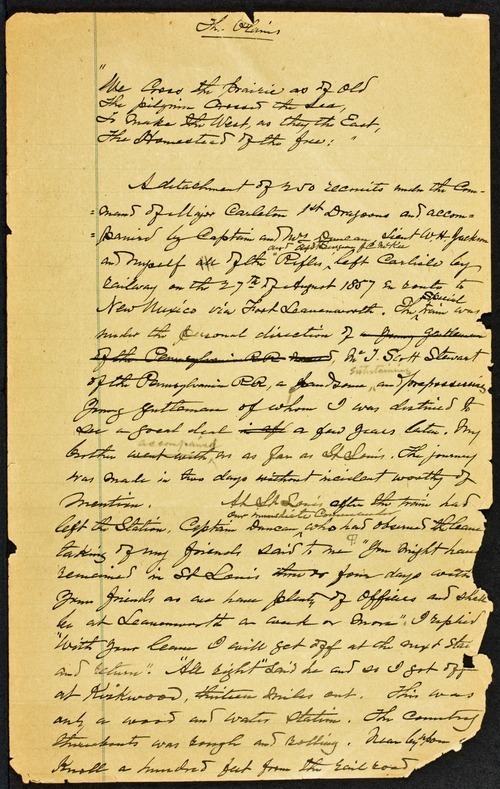 The Plains
"We cross the prairie as of old
The pilgrims crossed the sea,
To make the West, as they the East,
The Homestead of the free:"
A detachment of 250 recruits under the Com-
=mand of Major Carleton 1st Dragoons and accom-
=panied by Captain and Mrs Duncan Lieut W.H. Jackson
and
and myself all of the "Rifles", left Carlisle by
railway on the 27th of August 1857 en route to
special
New Mexico via Fort Leavenworth. The train was
under the personal direction of a young gentleman
of the Pennsylvania R.R. named Mr J. Scott Stewart
entertaining
of the Pennsylvania R.R., a handsome and prepossessing
young gentleman of whom I was destined to
see a good deal a few years later. My
accompanied
brother went with us as far as St Louis. The journey
was made in two days without incident worthy of
mention. At St Louis after the train had
our immediate Commander
left the Station, Captain Duncan who had observed the leave
taking of my friends said to me "You might have
remained in St Louis three or four days with
your friends as we have plenty of Officers and shall
be at Leavenworth a week or more". I replied
"With your leave I will get off at the next Sta
and return". "All right" said he and so I got off
at Kirkwood, thirteen miles out. This was
only a wood and water Station. The country
thereabouts was rough and rolling. Near by on
knoll a hundred feet from the rail road